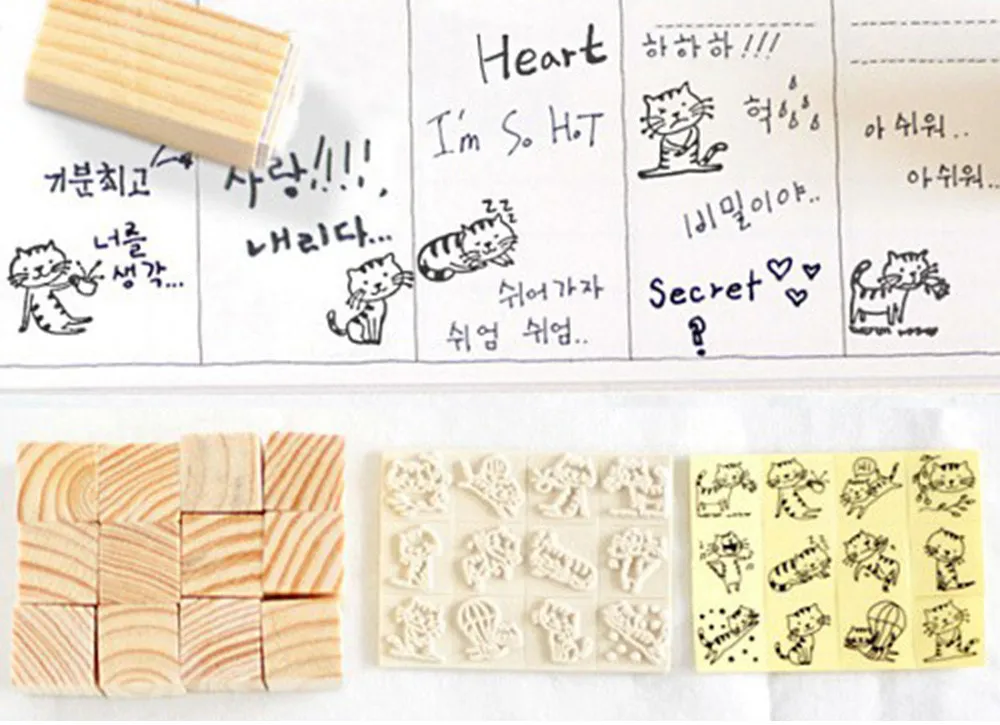 기분최고
너를
생각...
사랑!!!!,
내리다...
Heart
I'm So HOT
zzz
쉬어가자
쉬엄 쉬엄..
하하하!!!
헉
비밀이야..
Secret
?
아쉬워..
아쉬워..
Hi